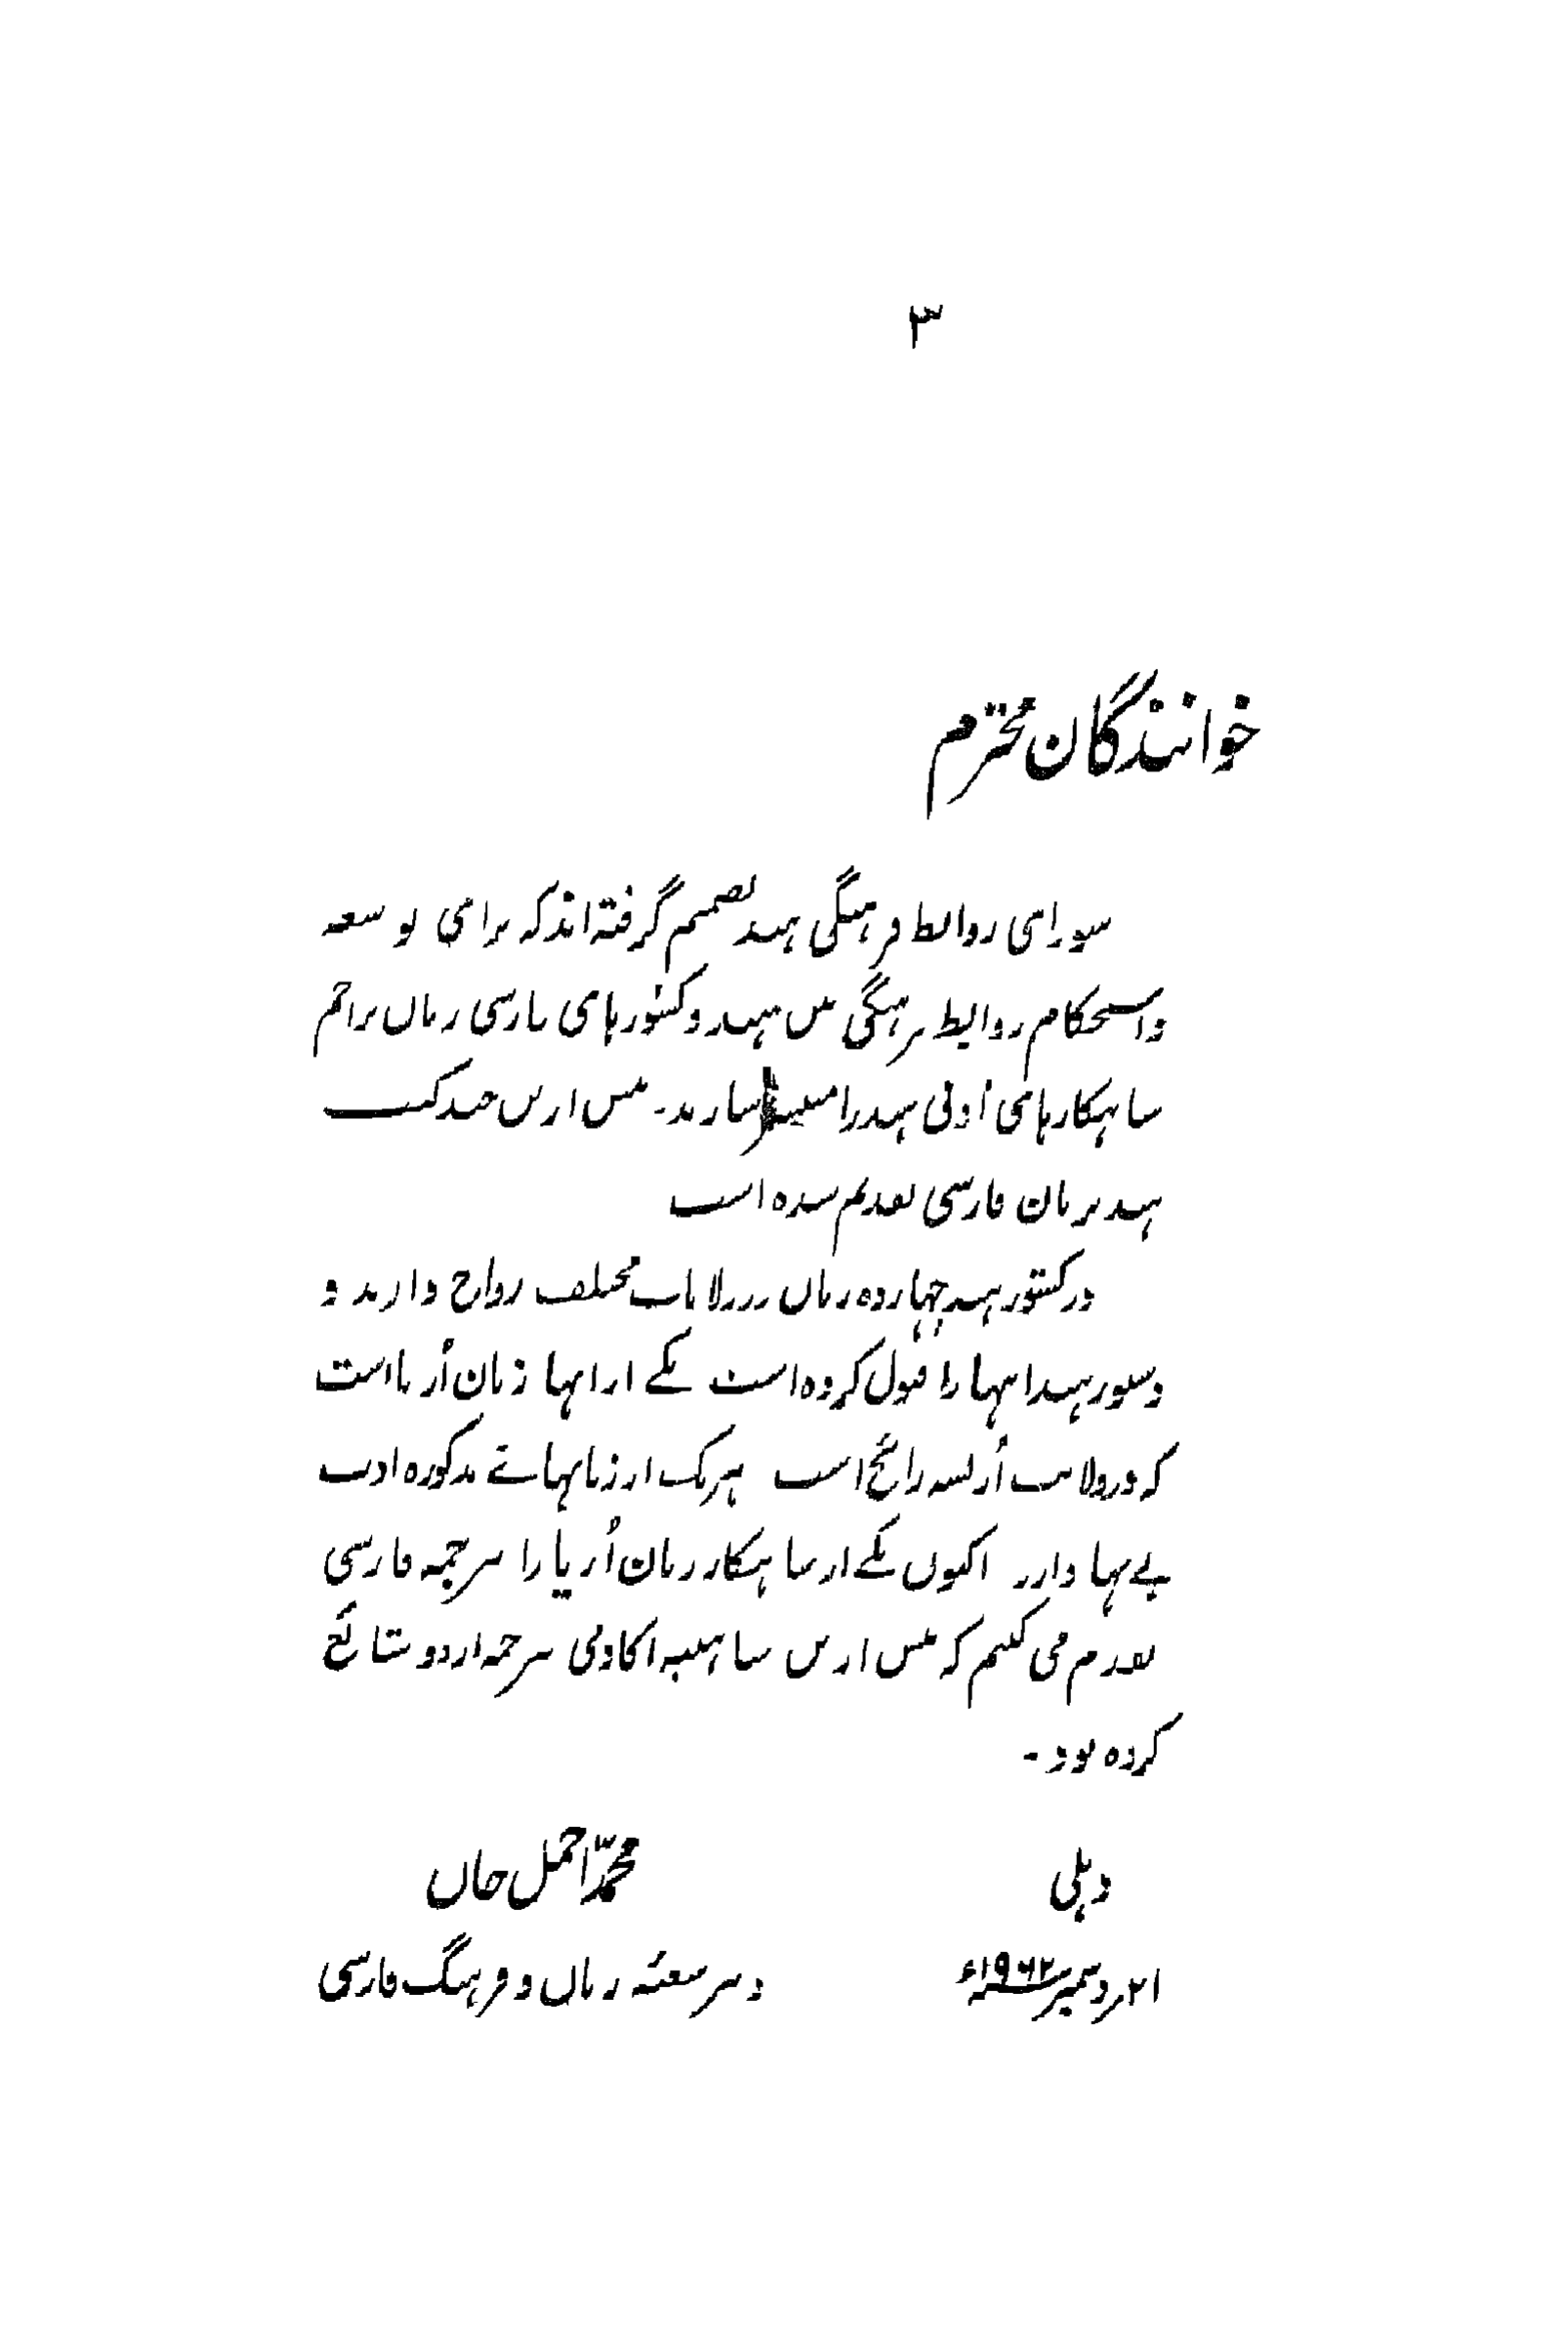 ۳
خوانندگان محترم
شورای روابط فرهنگی هند تصمیم گرفته اند که برای توسعه
و استحکام روابط فرهنگی بین هند و کشورهای فارسی زبان تراجم
شاهکارهای ادبی هند را منتشر سازند۔ پیش ازین چند کتب
هند بزبان فارسی تقدیم شده است
در کشور هند چهارده زبان در ولایات مختلف رواج دارند و
دستور هند اینها را قبول کرده است یکے ازانها زبان اُریا است
که در ولایت اُریسه رائج است هر یک از زبانهائے مذکوره ادب
بے بها دارد اکنون یکے از شاهکار زبان اُریا را ترجمه فارسی
تقدیم می کنیم که پیش ازین ساهتیه اکادمی ترجمه اردو شائع
کرده بود۔
دہلی
محمّد اجمل خاں
۲۱ر دسمبر ۱۹۶۲ء
دبیر شعبئه زبان و فرهنگ فارسی